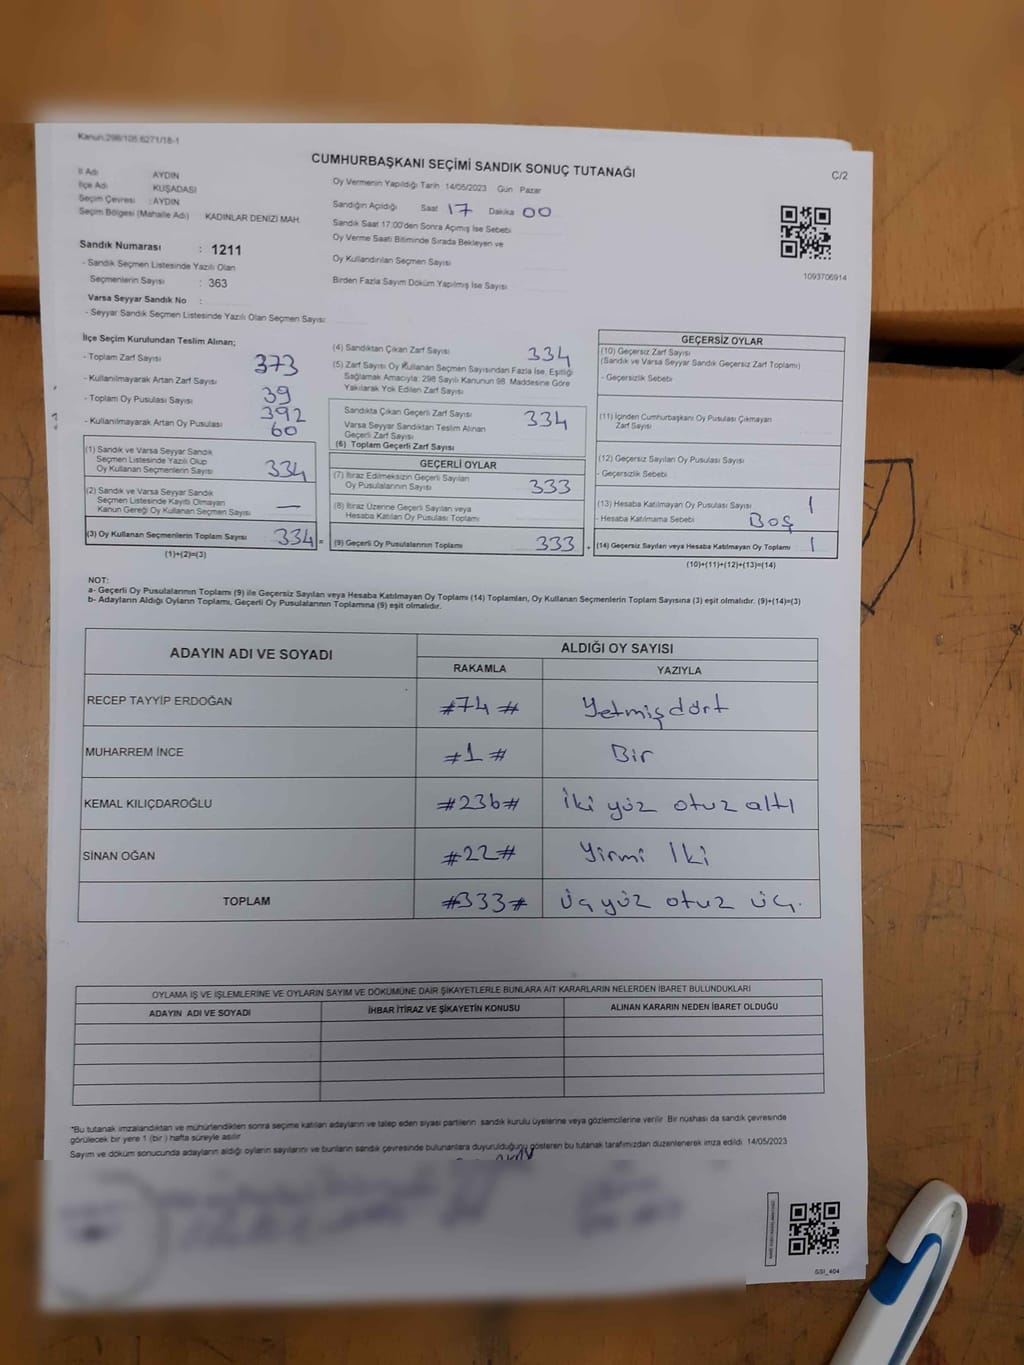 Kanun:298/105,6271/18-1
CUMHURBAŞKANI SEÇİMİ SANDIK SONUÇ TUTANAĞI
C/2
İl Adı AYDIN
İlçe Adı KUŞADASI
Seçim Çevresi : AYDIN
Seçim Bölgesi (Mahalle Adı) KADINLAR DENİZİ MAH.
Sandık Numarası : 1211
- Sandık Seçmen Listesinde Yazılı Olan
Seçmenlerin Sayısı : 363
Varsa Seyyar Sandık No :
- Seyyar Sandık Seçmen Listesinde Yazılı Olan Seçmen Sayısı
Oy Vermenin Yapıldığı Tarih 14/05/2023 Gün Pazar
Sandığın Açıldığı Saat 17 Dakika 00
Sandık Saat 17:00'den Sonra Açımış İse Sebebi
Oy Verme Saati Bitiminde Sırada Bekleyen ve
Oy Kullandırılan Seçmen Sayısı
Birden Fazla Sayım Döküm Yapılmış İse Sayısı
1093706914
İlçe Seçim Kurulundan Teslim Alınan;
- Toplam Zarf Sayısı 373
- Kullanılmayarak Artan Zarf Sayısı 39
- Toplam Oy Pusulası Sayısı 392
- Kullanılmayarak Artan Oy Pusulası 60
(1) Sandık ve Varsa Seyyar Sandık
Seçmen Listesinde Yazılı Olup
Oy Kullanan Seçmenlerin Sayısı 334
(2) Sandık ve Varsa Seyyar Sandık
Seçmen Listesinde Kayıtlı Olmayan
Kanun Gereği Oy Kullanan Seçmen Sayısı —
(3) Oy Kullanan Seçmenlerin Toplam Sayısı 334 =
(1)+(2)=(3)
(4) Sandıktan Çıkan Zarf Sayısı 334
(5) Zarf Sayısı Oy Kullanan Seçmen Sayısından Fazla İse, Eşitliği
Sağlamak Amacıyla; 298 Sayılı Kanunun 98. Maddesine Göre
Yakılarak Yok Edilen Zarf Sayısı
Sandıkta Çıkan Geçerli Zarf Sayısı 334
Varsa Seyyar Sandıktan Teslim Alınan
Geçerli Zarf Sayısı
(6) Toplam Geçerli Zarf Sayısı
GEÇERLİ OYLAR
(7) İtiraz Edilmeksizin Geçerli Sayılan
Oy Pusulalarının Sayısı 333
(8) İtiraz Üzerine Geçerli Sayılan veya
Hesaba Katılan Oy Pusulası Toplamı
(9) Geçerli Oy Pusulalarının Toplamı 333 +
GEÇERSİZ OYLAR
(10) Geçersiz Zarf Sayısı
(Sandık ve Varsa Seyyar Sandık Geçersiz Zarf Toplamı)
- Geçersizlik Sebebi
(11) İçinden Cumhurbaşkanı Oy Pusulası Çıkmayan
Zarf Sayısı
(12) Geçersiz Sayılan Oy Pusulası Sayısı
- Geçersizlik Sebebi
(13) Hesaba Katılmayan Oy Pusulası Sayısı 1
- Hesaba Katılmama Sebebi Boş
(14) Geçersiz Sayılan veya Hesaba Katılmayan Oy Toplamı 1
(10)+(11)+(12)+(13)=(14)
NOT:
a- Geçerli Oy Pusulalarının Toplamı (9) ile Geçersiz Sayılan veya Hesaba Katılmayan Oy Toplamı (14) Toplamları, Oy Kullanan Seçmenlerin Toplam Sayısına (3) eşit olmalıdır. (9)+(14)=(3)
b- Adayların Aldığı Oyların Toplamı, Geçerli Oy Pusulalarının Toplamına (9) eşit olmalıdır.
ADAYIN ADI VE SOYADI ALDIĞI OY SAYISI
RAKAMLA YAZIYLA
RECEP TAYYİP ERDOĞAN #74# Yetmişdört
MUHARREM İNCE #1# Bir
KEMAL KILIÇDAROĞLU #236# iki yüz otuz altı
SİNAN OĞAN #22# Yirmi İki
TOPLAM #333# üçyüz otuz üç.
OYLAMA İŞ VE İŞLEMLERİNE VE OYLARIN SAYIM VE DÖKÜMÜNE DAİR ŞİKAYETLERLE BUNLARA AİT KARARLARIN NELERDEN İBARET BULUNDUKLARI
ADAYIN ADI VE SOYADI İHBAR İTİRAZ VE ŞİKAYETİN KONUSU ALINAN KARARIN NEDEN İBARET OLDUĞU
*Bu tutanak imzalandıktan ve mühürlendikten sonra seçime katılan adayların ve talep eden siyasi partilerin sandık kurulu üyelerine veya gözlemcilerine verilir. Bir nüshası da sandık çevresinde
görülecek bir yere 1 (bir ) hafta süreyle asılır
Sayım ve döküm sonucunda adayların aldığı oyların sayılarını ve bunların sandık çevresinde bulunanlara duyurulduğunu gösteren bu tutanak tarafımızdan düzenlenerek imza edildi. 14/05/2023
SSI_404